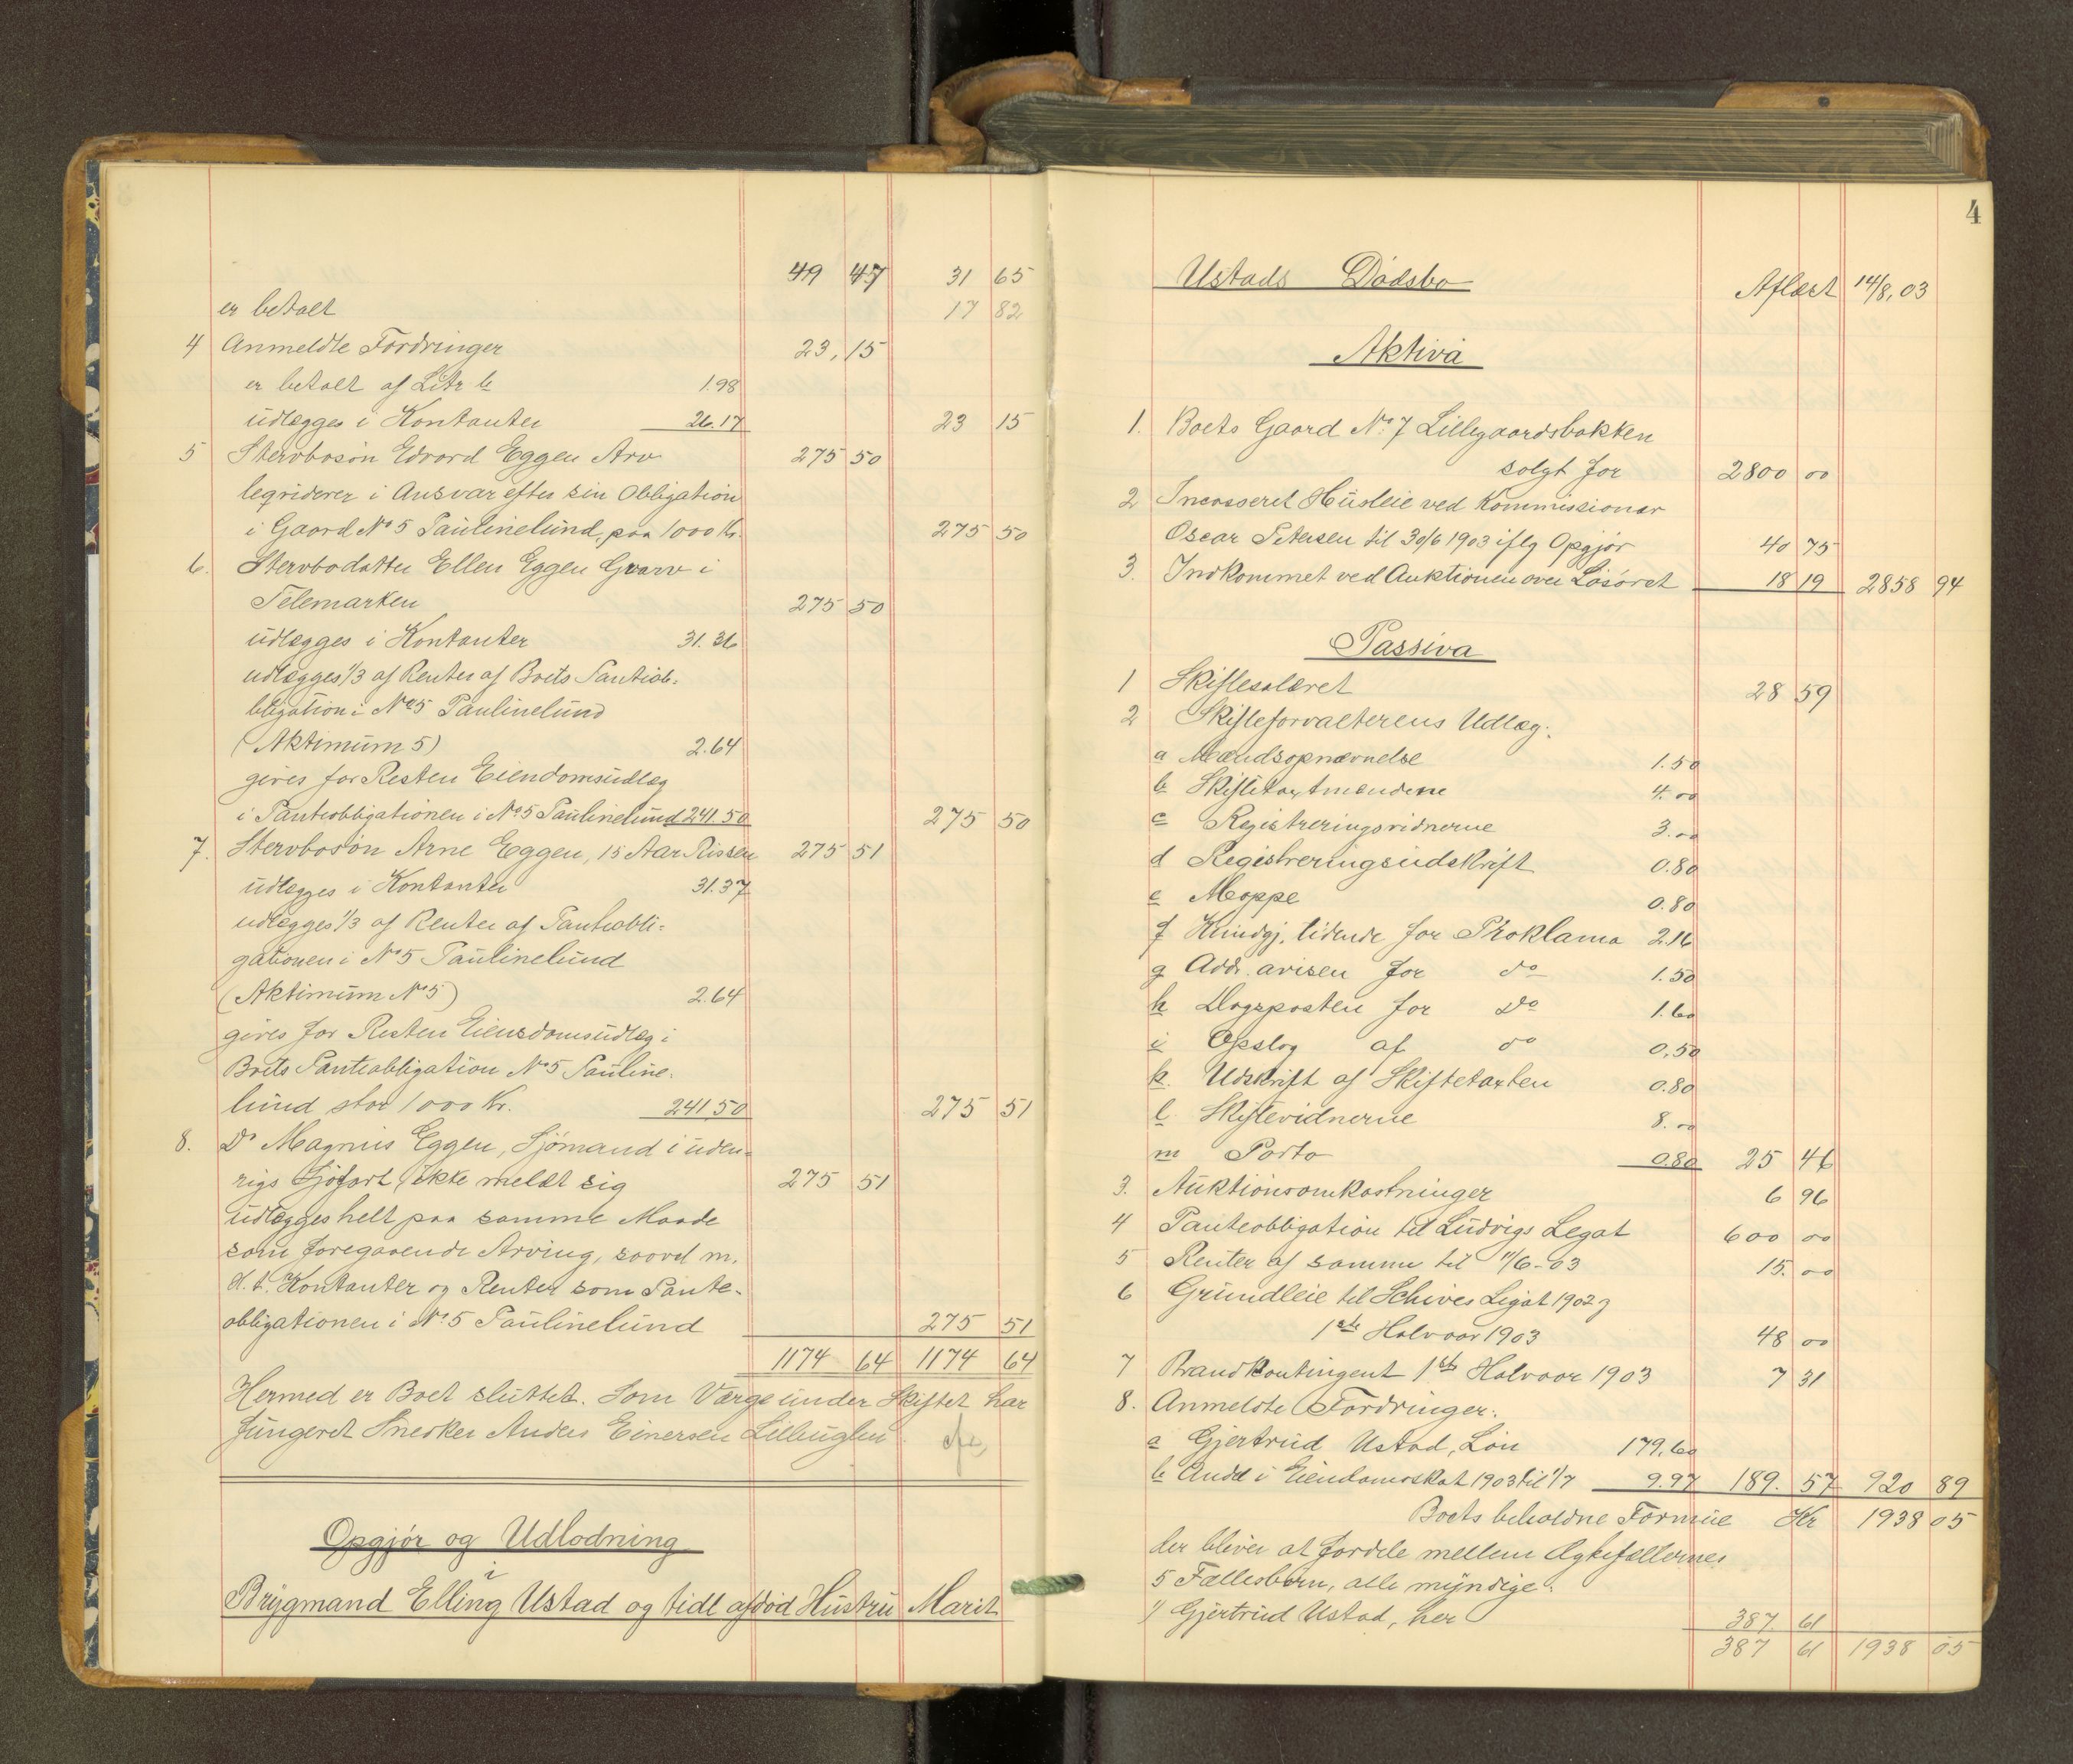 49 47 31 65
er betalt 17 82
4 Anmeldte Fordringer 23,15
er betalt af Litr b 1.98
udlægges i Kontanter 26.17 23 15
5 Stervbosön Edvard Eggen Arv 275 50
leqriderer i Ansvar efter sin Obligation
i Gaard No 5 Paulinelund, paa 1000 Kr. 275 50
6. Stervbodatter Ellen Eggen Gvarv i
Telemarken 275 50
udlægges i Kontanter 31.36
udlægges 1/3 af Renter af Boets Pantiob-
bligation i No 5 Paulinelund
(Aktimum 5) 2.64
gives for Resten Eiendomsudlæg
i Panteobligationen i No 5 Paulinelund 241.50 275 50
7. Stervbosön Arne Eggen, 15 Aar Rissen 275 51
udlægges i Kontanter 31.37
udlægges 1/3 af Renter af Panteobli-
gationen i No 5 Paulinelund
(Aktimum No 5) 2.64
gives for Resten Eiensdomsudlæg i
Boets Panteobligation No 5 Pauline-
lund stor 1000 Kr. 241,50 275 51
8. Do Magnus Eggen, Sjömand i uden-
rigs Sjöfart, ikke meldt sig 275 51
udlægges helt paa samme Maade
som foregaaende Arving, saavel m.
H. t. Kontanter og Renter som Pante-
obligationen i No 5 Paulinelund 275 51
1174 64 1174 64
Hermed er Boet sluttet. Som Værge under Skiftet har
fungeret Snedker Anders Einersen Lilleuglen
Opgjör og Udlodning
i
Brygmand Elling Ustad og tidl afdöd Hustru Marit
4
Ustads Dödsbo Aflæst 14/8,03
Aktiva
1. Boets Gaard No 7 Lillegaardsbakken
solgt for 2800 00
2 Incasseret Husleie ved Kommissionær
Oscar Petersen til 30/6 1903 iflg Opgjör 40 75
3. Indkommet ved Auktionen over Lösöret 18 19 2858 94
Passiva
1 Skiftesalæret 28 59
2 Skifteforvalterens Udlæg:
a Mændsopnævnelse 1.50
b Skiftetaxtmændene 4.00
c Registreringsvidnerne 3.00
d Registreringsudskrift 0.80
e Mappe 0.80
f Kundgj. tidende for Proklama 2.16
g Adr. avisen for do 1.50
h Dagsposten for do 1.60
i Opslag af do 0,50
k Udskrift af Skiftetaxten 0.80
l Skiftevidnerne 8.00
m Porto 0.80 25 46
3. Auktionsomkostninger 6 96
4 Panteobligation til Ludvigs Legat 600 00
5 Renter af samme til 11/6-03 15.00
6 Grundleie til Schives Legat 1902 og
1ste Halvaar 1903 48 00
7 Brandkontingent 1ste Halvaar 1903 7 31
8. Anmeldte Fordringer:
a Gjertrud Ustad, Lön 179.60
b Andel i Eiendomsskat 1903 til 1/7 9.97 189. 57 920 89
Boets beholdne Formue Kr 1938 05
der bliver at fordele mellem Ægtefællernes
5 Fællesbørn, alle myndige:
1/ Gjertrud Ustad, her 387. 61
387 61 1938 05